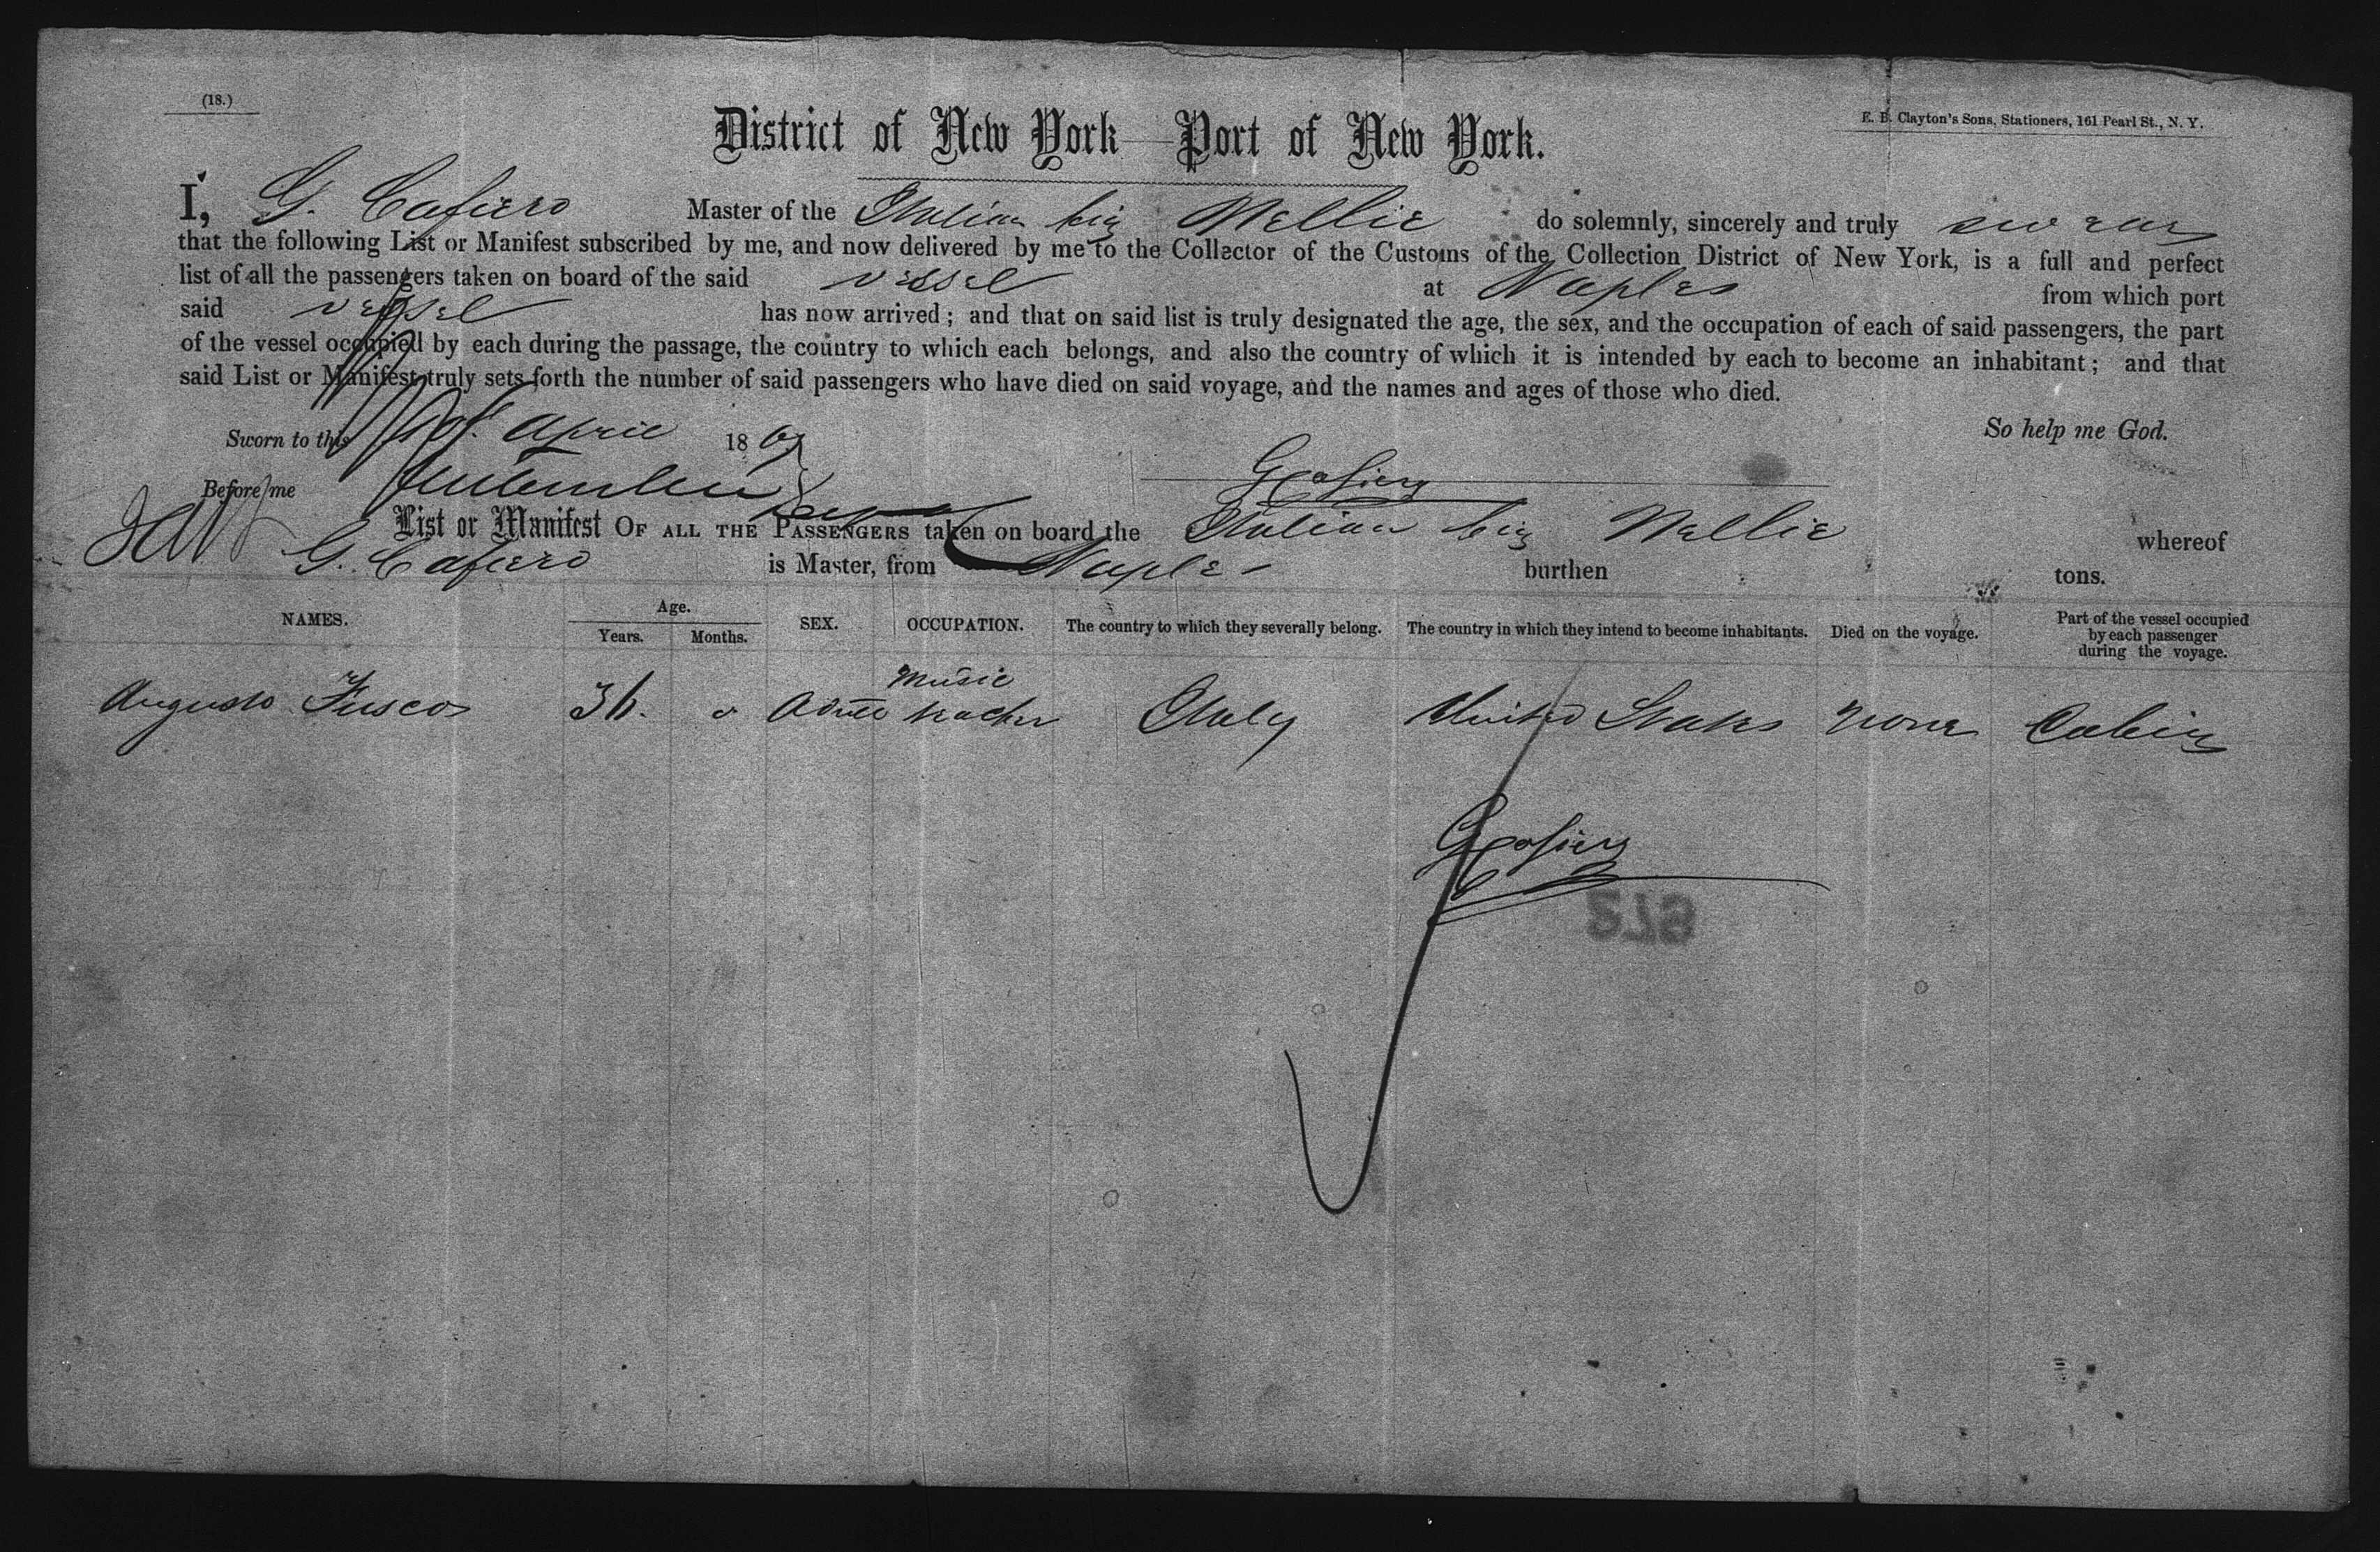 (18.)
E. B. Clayton's Sons, Stationers, 161 Pearl St., N. Y.
District of New York — Port of New York.
I, G. Cafiero Master of the Italian brig Nellie do solemnly, sincerely and truly swear
that the following List or Manifest subscribed by me, and now delivered by me to the Collector of the Customs of the Collection District of New York, is a full and perfect
list of all the passengers taken on board of the said vessel at Naples from which port
said vessel has now arrived; and that on said list is truly designated the age, the sex, and the occupation of each of said passengers, the part
of the vessel occupied by each during the passage, the country to which each belongs, and also the country of which it is intended by each to become an inhabitant; and that
said List or Manifest truly sets forth the number of said passengers who have died on said voyage, and the names and ages of those who died.
So help me God.
Sworn to this April 186
Before me
GCafiero
List or Manifest OF ALL THE PASSENGERS taken on board the Italian brig Nellie whereof
G. Cafiero is Master, from Naples burthen tons.
NAMES. Age. Years. Months. SEX. OCCUPATION. The country to which they severally belong. The country in which they intend to become inhabitants. Died on the voyage. Part of the vessel occupied by each passenger during the voyage.
Augusto Fusco 36. 0 music teacher Italy United States none Cabin
GCafiero